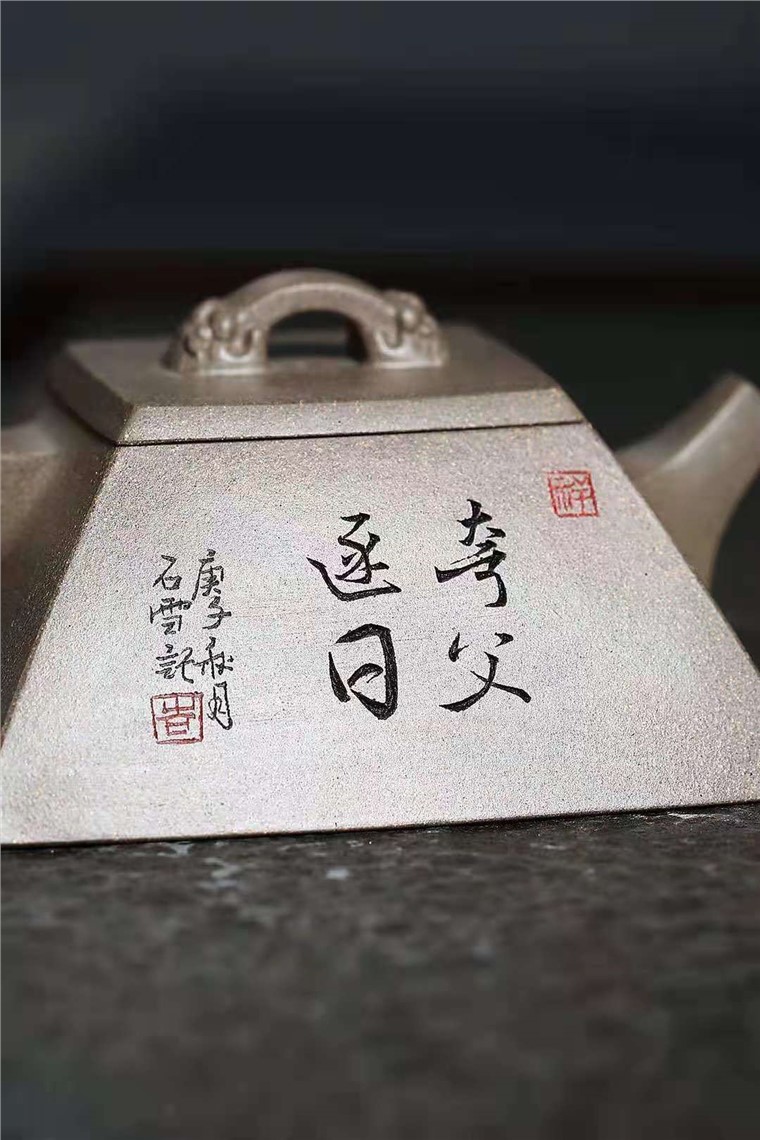 祥
夸父
逐日
庚子秋月
石雪記
吉